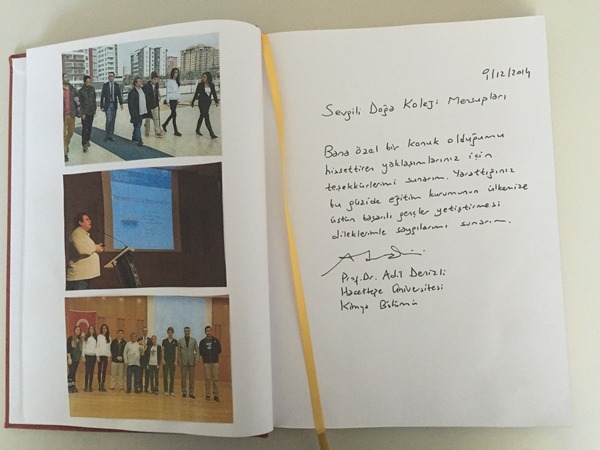 9/12/2014
Sevgili Doğa Koleji Mensupları
Bana özel bir konuk olduğumu
hissettiren yaklaşımlarınız için
teşekkürlerimi sunarım. Yarattığınız
bu güzide eğitim kurumunun ülkemize
üstün başarılı gençler yetiştirmesi
dileklerimle saygılarımı sunarım.
Prof. Dr. Adil Denizli
Hacettepe Üniversitesi
Kimya Bölümü